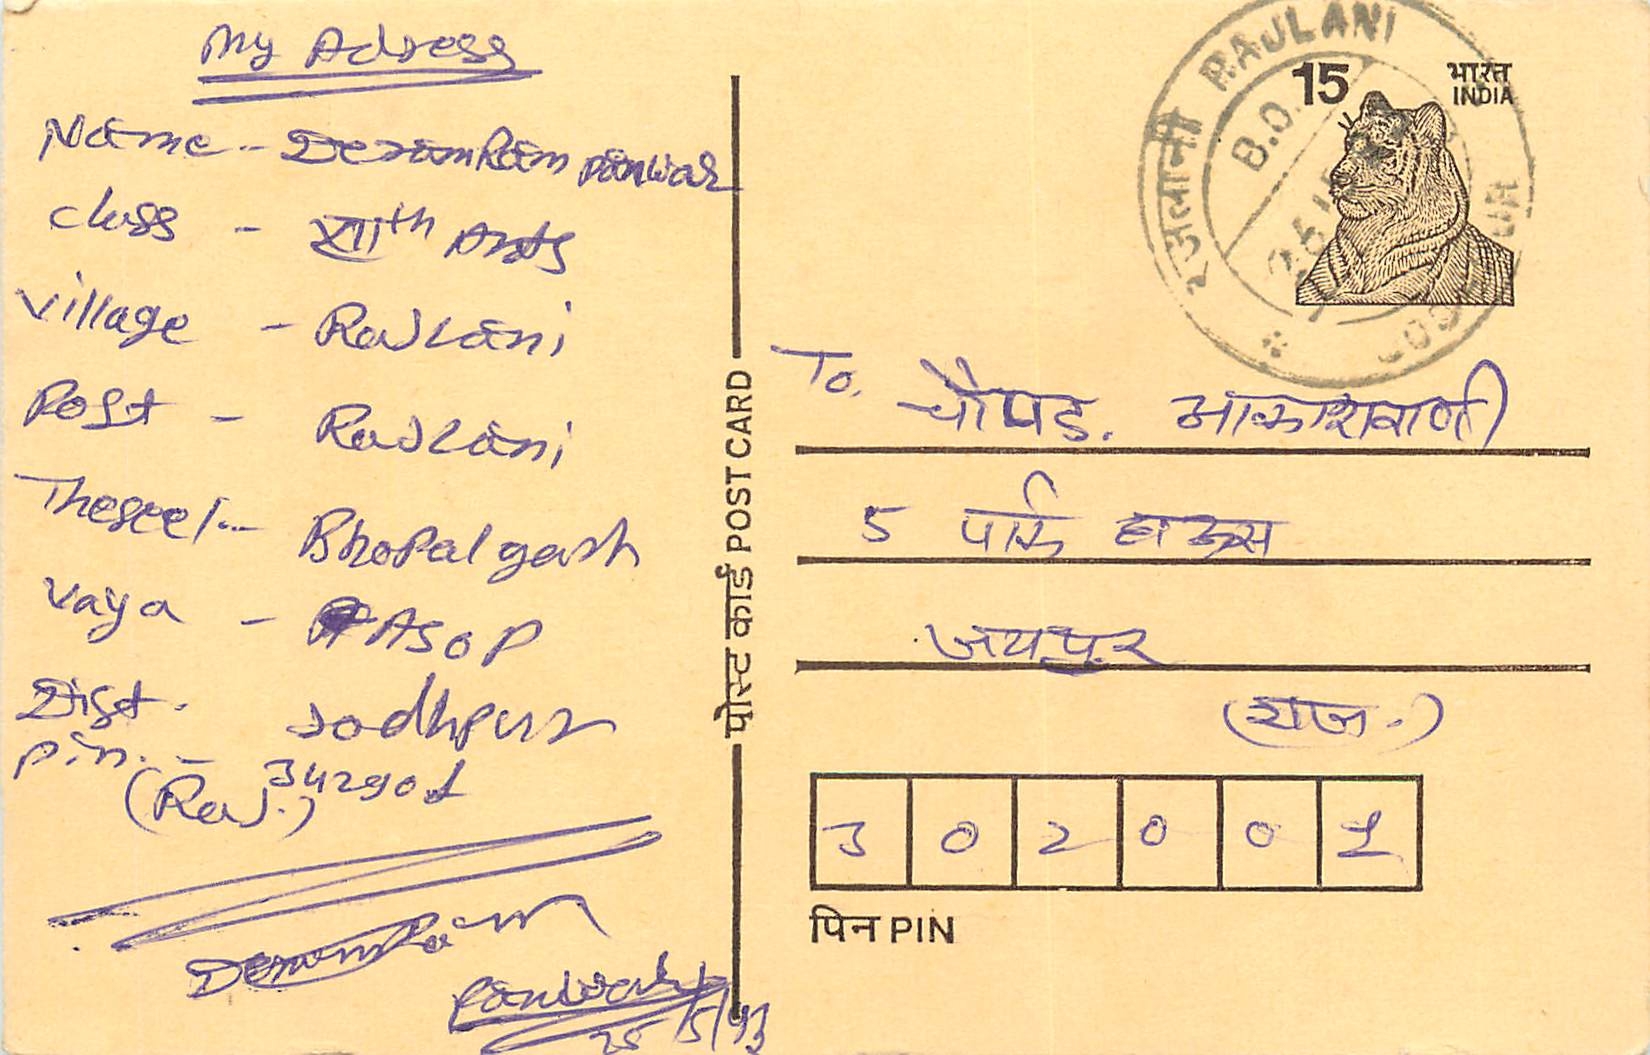 My Adress
Name - Deramram panwar
Class - XIth Arts
Village - RaJLani
Post - RaJLani
Theseel - Bhopalgarh
Vaya - ASOP
Dist. Jodhpur
Pin. - 342901
(Raj.)
Deramram
Panwar
25/5/93
पोस्ट कार्ड POST CARD
रजलानी RAJLANI
B.O.
15
भारत
INDIA
To.
चौपड. आकाशवाणी
5 पार्क हाऊस
जयपुर
(राज.)
3 0 2 0 0 1
पिन PIN